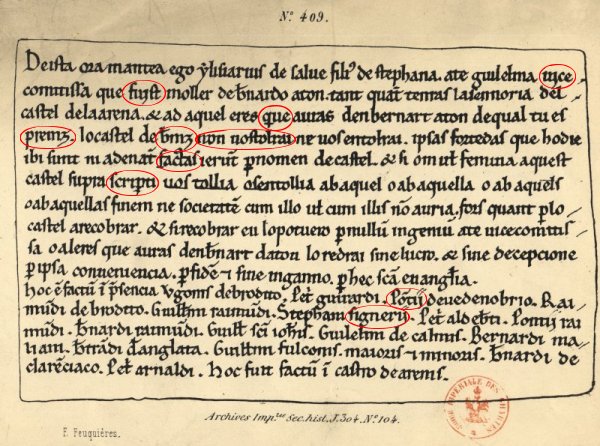 Nº 409.
De ista ora mantea ego ylisiarius de salue filiꝰ de stephana. a te guilelma vice
comitissa que fuist moller de bnardo aton. tant quāt tenras la sennoria del
castel de la arena. & ad aquel eres que auras den bernart aton de qual tu es
premz lo castel de bmz non uos tolrai ne uos entolrai. ipsas fortedas que hodie
ibi sunt ni adenāt factas ierunt p nomen de castel. & si om ut femina aquest
castel supra scripti uos tollia o sen tollia ab aquel o ab aquella o ab aquels
o ab aquellas finem ne societatē cum illo ut cum illis nō auria. fors quant p lo
castel a recobrar. & si recobrar eu lo potuero p nullū ingeniu a te vicecomitis
sa o al eres que auras den bnart daton lo redrai sine lucro. & sine deceptione
p ipsa conueniencia. p fide & sine inganno. p hec scā euangīia.
Hoc ē factū ī psencia Ugonis de brodeto. Pet guirardi. Pōcii de uedenobrio. Rai
mūdi de brodeto. Guillmi raimūdi. Stephani signerii. Pet aldebti. Poncii rai
mūdi. bnardi raimūdi. Guill scī iohīs. Guilelmi de calmis. Bernardi ma
li am. btrādi d anglata. Guillmi fulconis. maioris & minoris. bnardi de
clarēciaco. Pet arnaldi. Hoc fuit factū ī castro de arenis.
Archives Imp.les Sec. hist. J. 304. Nº 104.
F. Feuguières.